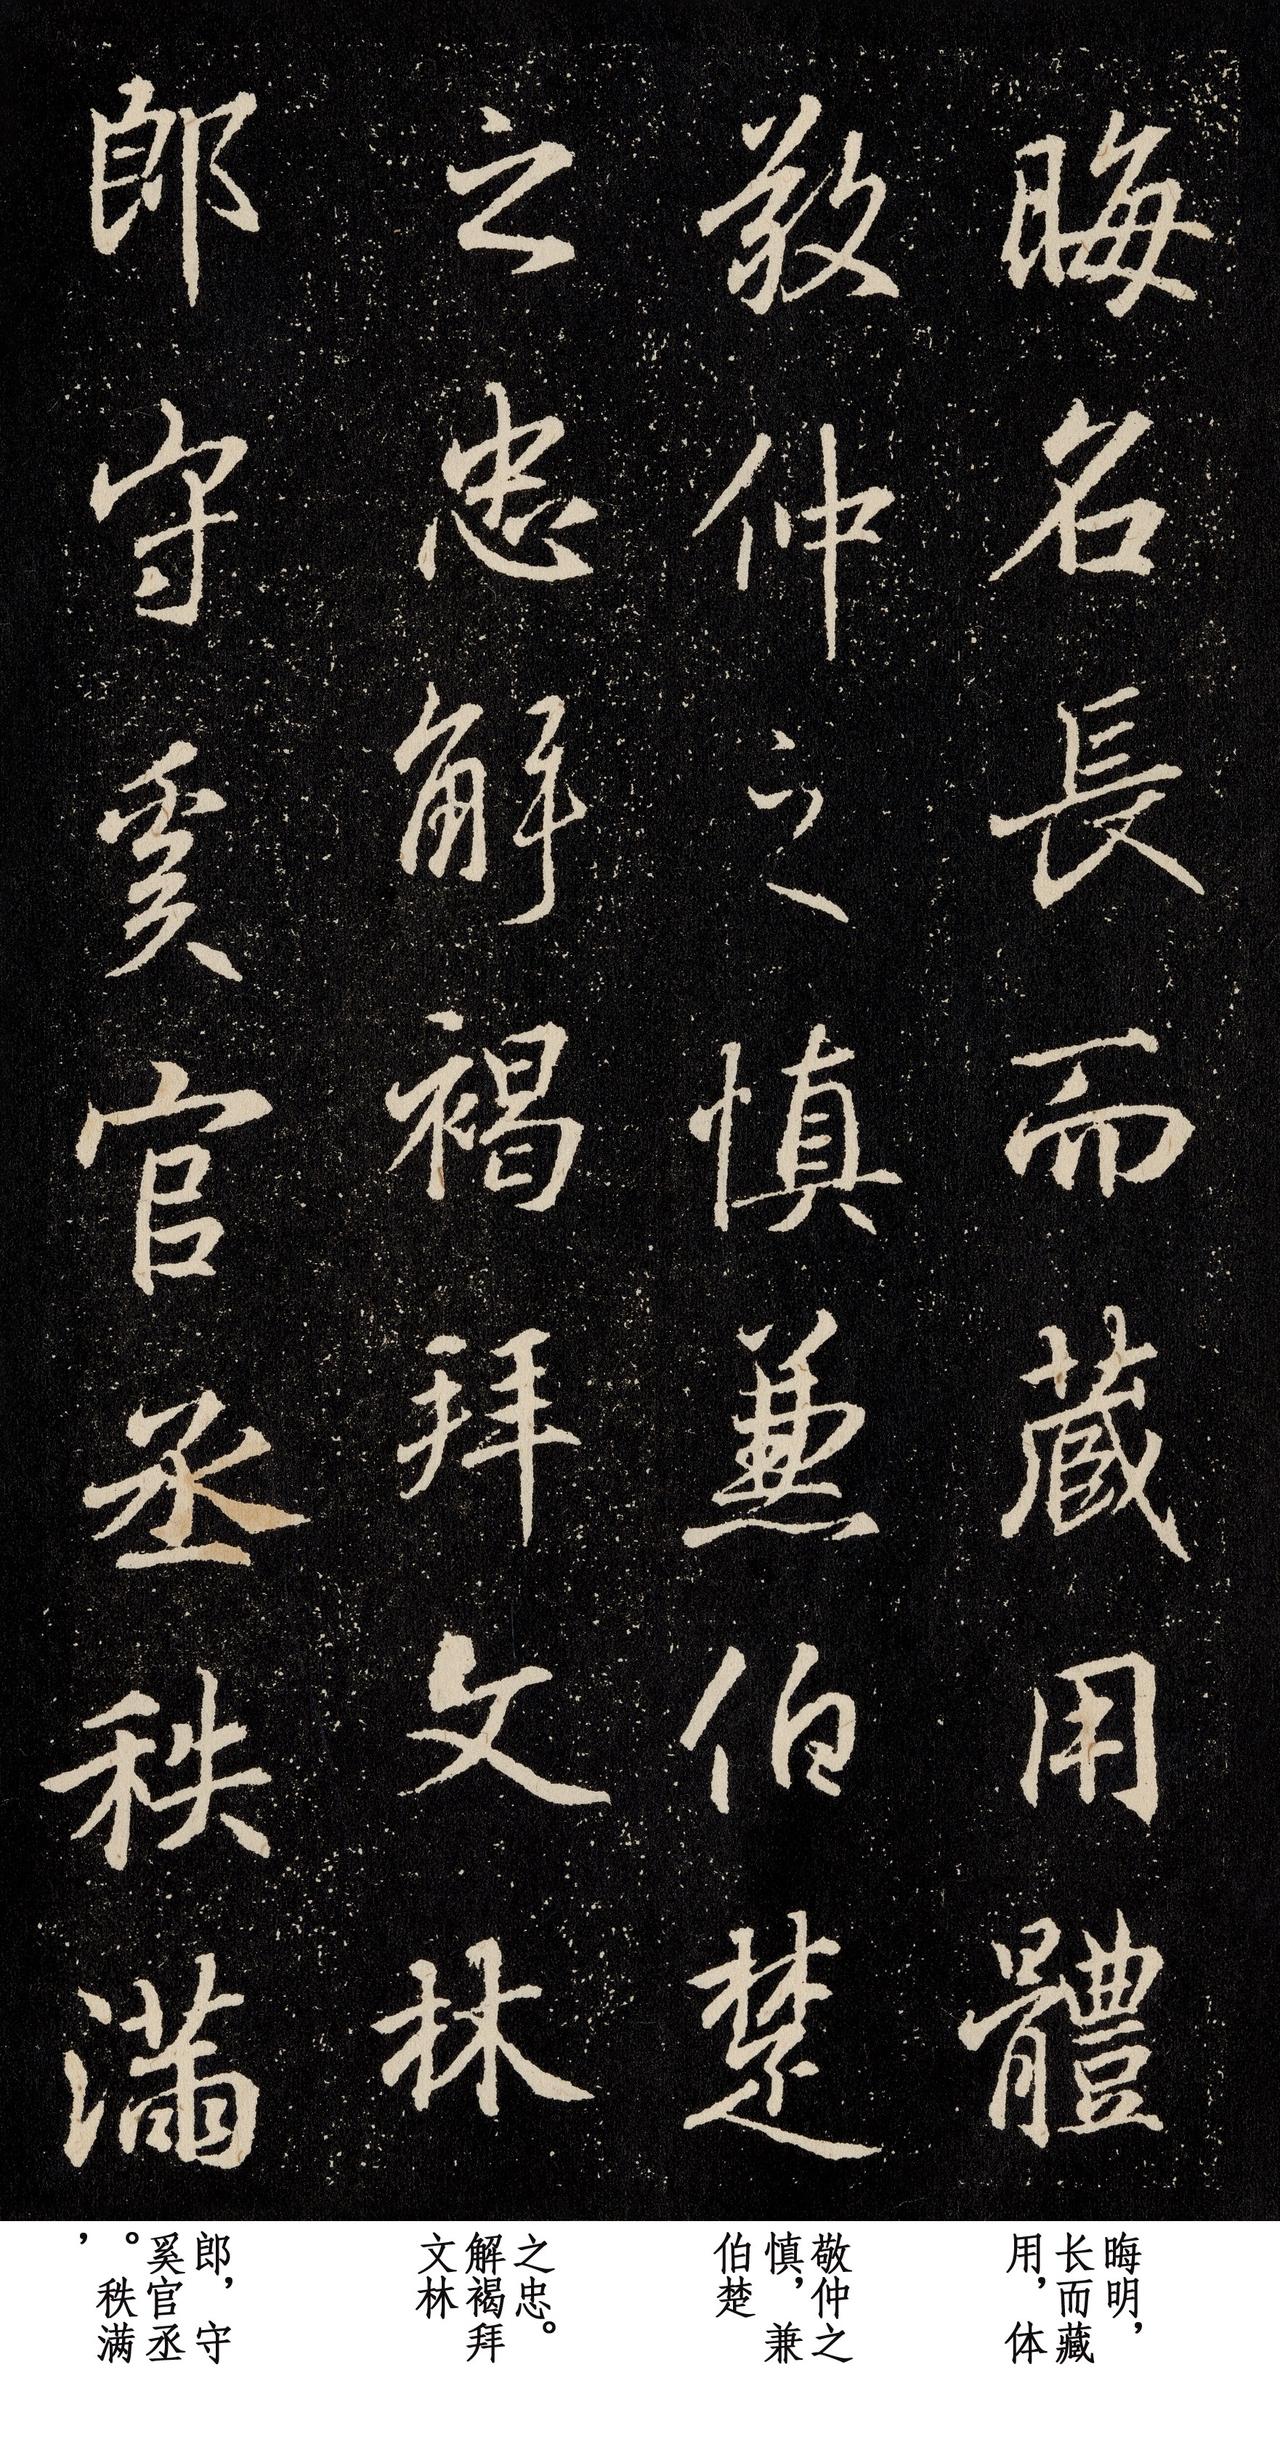 晦名長而藏用體
敬仲之慎兼伯楚
之忠解褐拜文林
郎守奚官丞秩滿
晦明，
长而藏
用，体
敬仲之
慎，兼
伯楚
之忠。
解褐拜
文林
郎，守
奚官丞
。秩满
，